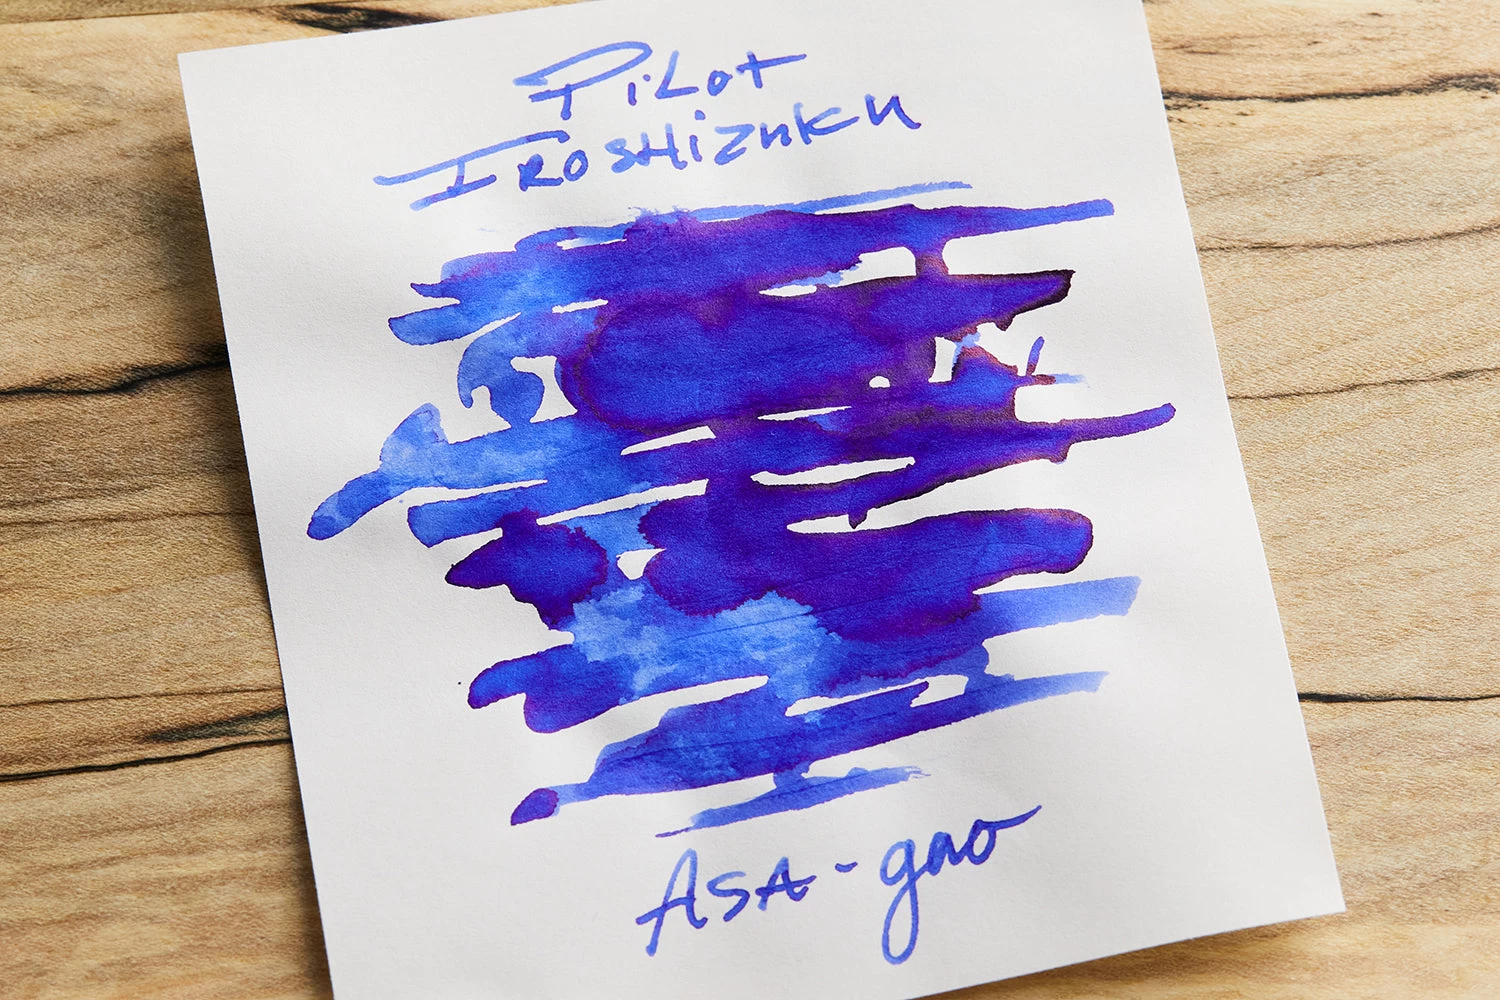 Pilot
IROSHIZUKU
ASA-gao